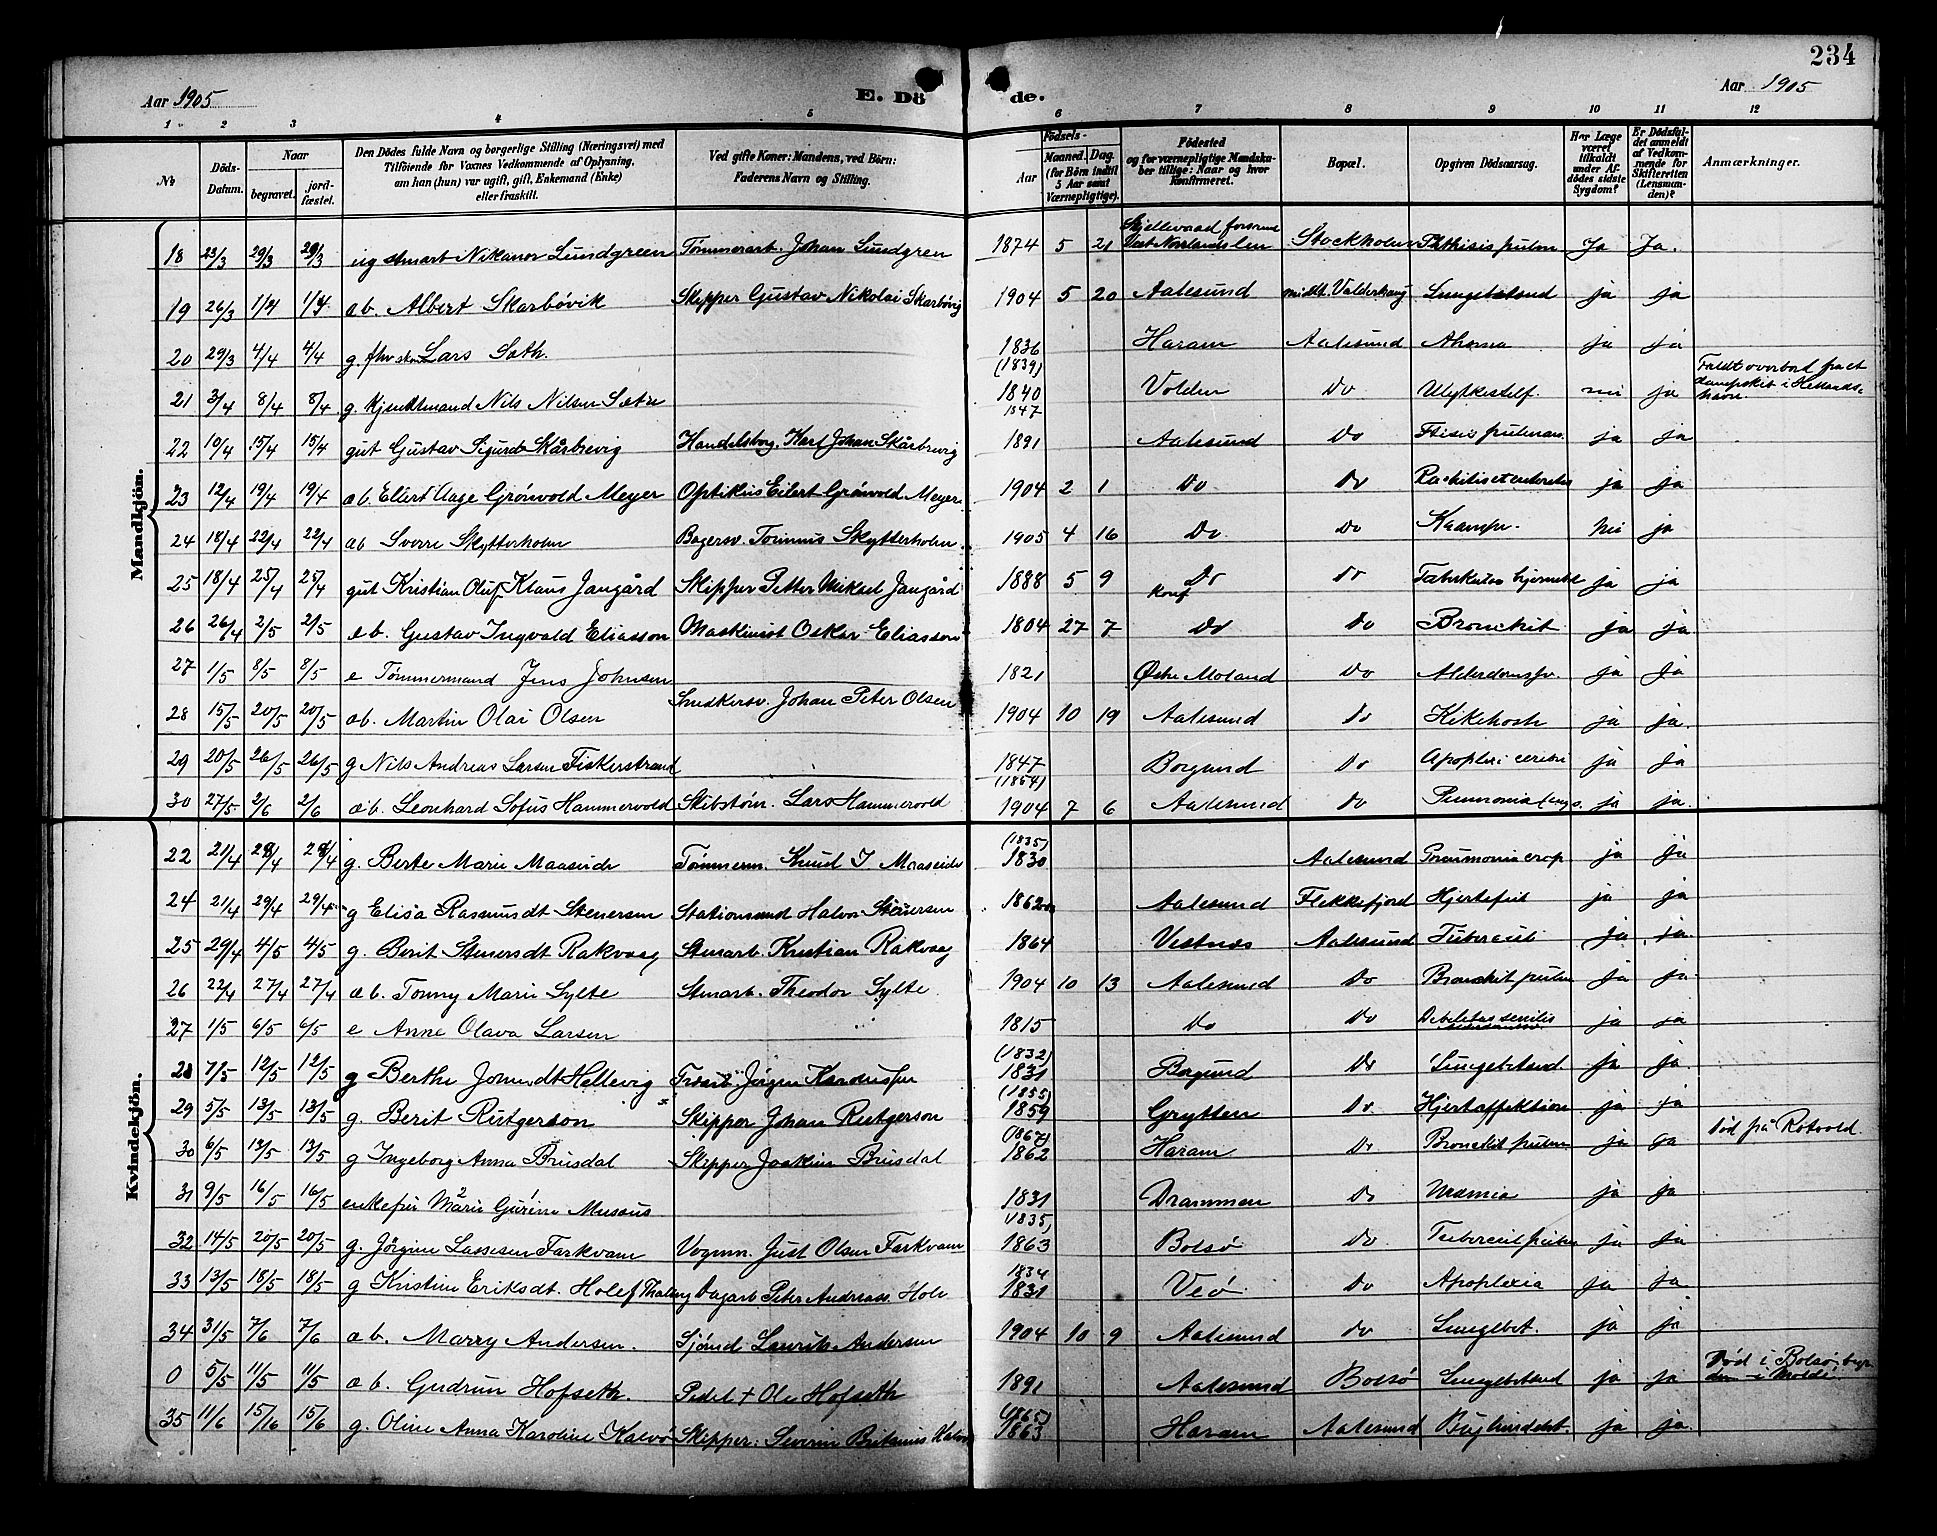 234
Aar 1905
E. Dö de.
Aar 1905
1 2 3 4 5 6 7 8 9 10 11 12
№
Döds-Datum.
Naar
begravet.
jordfæstet.
Den Dödes fulde Navn og borgerlige Stilling (Næringsvei) med Tilföiende for Voxnes Vedkommende af Oplysning, om han (hun) var ugift, gift, Enkemand (Enke) eller fraskilt.
Ved gifte Koner: Mandens, ved Börn: Faderens Navn og Stilling.
Födsels-
Aar
Maaned. Dag.
(for Börn indtil 5 Aar samt Værnepligtige).
Födested og for værnepligtige Mandskaber tillige: Naar og hvor Konfirmeret.
Bopæl.
Opgiven Dödsaarsag.
Har Læge været tilkaldt under Afdödes sidste Sygdom?
Er Dödsfaldet anmeldt af Vedkommende for Skifteretten (Lensmanden)?
Anmærkninger.
Mandkjön.
18 23/3 29/3 29/3 ug stmart Nikanor Lundgreen Tømmerarb. Johan Lundgren 1874 5 21 Stockholm Phthisis pulm Ja Ja.
19 26/3 1/4 1/4 ab. Albert Skarbövik Skipper Gustav Nikolai Skarbövig 1904 5 20 Aalesund midlt. Valderhaug Lungebetænd ja ja
20 29/3 4/4 4/4 g. fhv Lars Sæth. 1836 (1839) Haram Aalesund ja ja
21 3/4 8/4 8/4 g. Kjendtmand Nils Nilsen Sætre 1840 1847 Volden Do Ulykkestilf. nei ja Faldt overbord fra et dampskib i havn.
22 10/4 15/4 15/4 gut Gustav Sigurd Skårbrevig Handelsborg. Karl Johan Skårbrevig 1891 Aalesund Do Ftisis pulmon. ja ja
23 12/4 19/4 19/4 ab. Eilert Aage Grönvold Meyer Optikus Eilert Grönvold Meyer 1904 2 1 Do Do ja ja
24 18/4 22/4 22/4 ab Sverre Skytterholm Bagersv. Skytterholm 1905 4 16 Do Do Krampe. nei ja
25 18/4 25/4 25/4 gut Kristian Oluf Klaus Jangård Skipper Petter Mikael Jangård 1888 5 9 Do konf Do ja ja
26 26/4 2/5 2/5 eb. Gustav Ingvald Eliasson Maskinist Oskar Eliasson 1804 27 7 Do Do Bronchit ja ja
27 1/5 8/5 8/5 e Tömmermand Jens Johnsen 1821 Østre Moland Do ja ja
28 15/5 20/5 20/5 ab. Martin Olai Olsen Snedkersv. Johan Peter Olsen 1904 10 19 Aalesund Do Kikehoste ja ja.
29 20/5 26/5 26/5 g Nils Andreas Larsen Fiskerstrand 1847 (1854) Borgund Do Apoplexi cerebri ja ja
30 27/5 2/6 2/6 ab. Leonhard Sofus Hammervold Skibstøm. Lars Hammervold 1904 7 6 Aalesund Do ja ja.
Kvindekjön.
22 21/4 28/4 28/4 g. Berte Marie Maaseide Tömmerm. Knud J. Maaseide (1835) 1830 Aalesund Pneumonia crop ja ja
24 21/4 29/4 29/4 g Elisa Rasmusdt Stenersen Stationsmd Halvor Stenersen 1862 Aalesund Flekkefjord Hjertefeil ja ja
25 29/4 4/5 4/5 g. Berit Stenersdt Rakvaag Stmarb. Kristian Rakvaag 1864 Vestnæs Aalesund Tubercul ja ja
26 22/4 27/4 27/4 ab. Tonny Marie Sylte Stmarb. Theodor Sylte 1904 10 13 Aalesund Do Bronchit pulm ja ja
27 1/5 6/5 6/5 e Anne Olava Larsen 1815 Do Do Debilitas senilis ja ja
28 7/5 12/5 12/5 g Berthe Hellevig Jörgen (1832) 1831 Borgund Do Lungebetænd ja ja.
29 5/5 13/5 13/5 g. Berit Rutgerson Skipper Johan Rutgerson (1855) 1859 Grytten Do Hjertaffektion ja ja
30 6/5 13/5 13/5 g Ingeborg Anna Brusdal Skipper Joakim Brusdal (1867) 1862 Haram Do Bronchit pulm ja ja Död på Rotvold
31 9/5 16/5 16/5 enkefru Marie Gurine Musæus 1831 Drammen Do Uræmia ja ja
32 14/5 20/5 20/5 g. Jörgine Lassesen Farkvam Vognm. Just Olsen Farkvam 1835, 1863 Bolsø Do Tubercul pulm ja ja
33 13/5 18/5 18/5 g Kristine Eriksdt. Hole Dagarb Peter Andreas. Hole 1834 1831 Veö Do Apoplexia ja ja
34 31/5 7/6 7/6 ab. Marry Andersen. Sjömd. Laurits Andersen 1904 10 9 Aalesund Do Lungebet. ja ja
0 5/5 11/5 11/5 ab. Gudrun Hofseth. Pedel + Ole Hofseth 1891 Aalesund Bolsö Lungebetænd ja ja Død i Bolsø, i Molde
35 11/6 15/6 15/6 g. Oline Anna Karoline Kalvö Skipper: Severin Britanus Kalvø (1865) 1863 Haram Aalesund ja ja